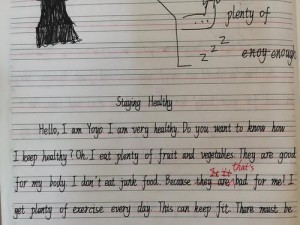 plenty of
z z z
enoy enough
Staying Healthy
Hello, I am Yoyo I am very healthy. Do you want to know how
I keep healthy? Oh. I eat plenty of fruit and vegetables. They are good
that's
for my body. I don't eat junk food. Because they are bad for me! I
get plenty of exercise every day. This can keep fit. There must be